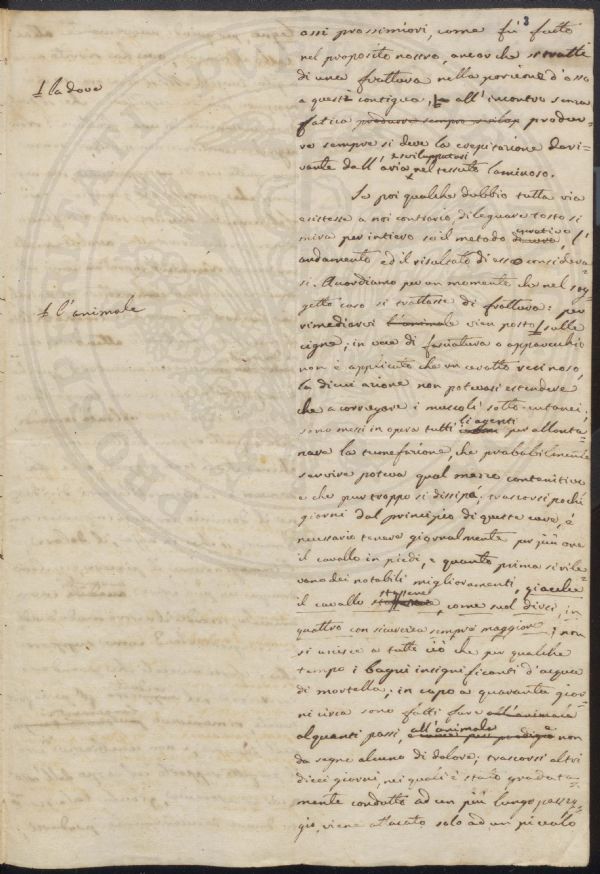 3
assi prossimiori, come fù fatto
nel proposito nostro, ancor che si tratti
di una frattura nella porzione d'osso
a questi contigua, all'incontro senza
fatica produrre sempre produr-
re sempre si deve la crepitazione deri-
vante dall'aria sviluppatasi nel tessuto laminoso.
Se poi qualche dubbio tutta via
esistesse a noi contrario, dileguare tosto si
mira per intiero so il metodo curativo, l'
andamento ed il risultato di esso considera-
si. Ricordiamo per un momento che nel sog-
getto caso si trattasse di frattura: per
rimediarvi l'animale vien posto sulle
cigne; in vece di fasciatura o apparecchio
non è applicato che un cerotto resinoso,
la di cui azione non potevasi estendere
che a corregare i muscoli sotto-cutanei;
sono messi in opera tutti gli agenti per allonta-
nare la tumefazione, che probabilmente
servire poteva qual mezzo contenitivo
e che pur troppo si dissipá; trascorsi pochi
giorni dal principio di queste cure, é
necessario tenere giornalmente per più ore
il cavallo in piedi, e quanto prima si rile-
vano dei notabili miglioramenti, giacche
il cavallo stassene, come suol dirsi, in
quattro con sicurezza sempre maggiore; non
si ascisce a tutto ciò che per qualche
tempo i bagni insignificanti d'acqua
di mortella; in capo a quaranta gior-
ni circa sono fatti fare all'animale
alquanti passi, all'animale non
da segno alcuno di dolore; trascorsi altri
dieci giorni, nei quali è stato gradata-
mente condotto ad un più lungo passeg-
gio, viene attacato solo ad un piccolo
la dove
l'animale